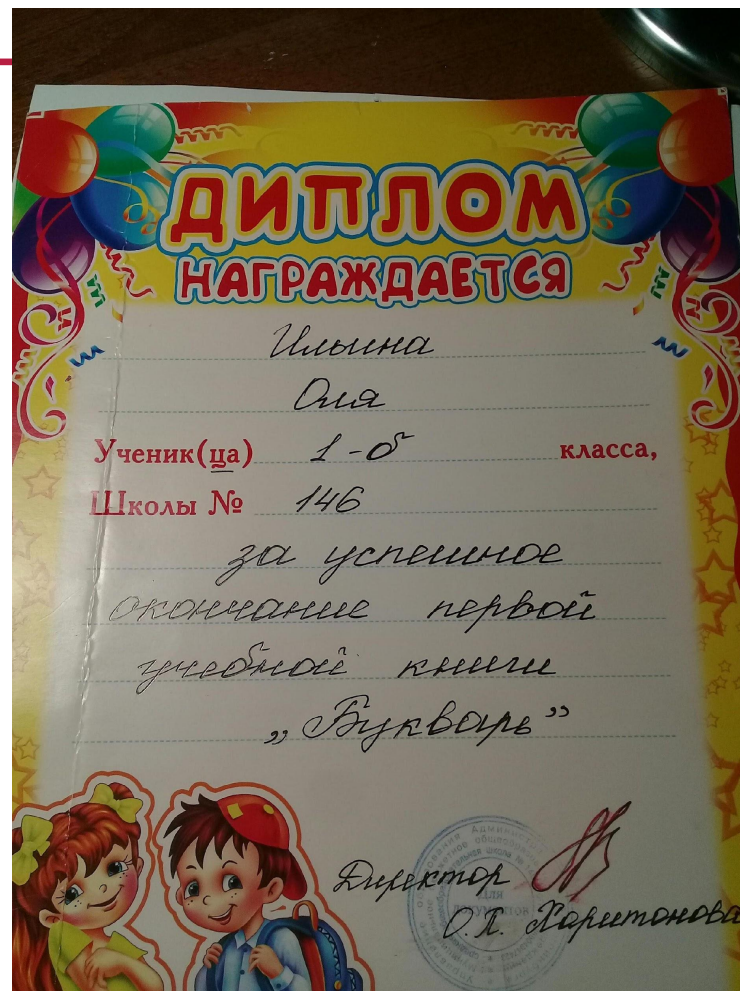 ДИПЛОМ
НАГРАЖДАЕТСЯ
Ильина
Оля
Ученик(ца) 1-б класса,
Школы № 146
за успешное
окончание первой
учебной книги
„Букварь”
Директор
О.П. Харитонова
для
документов